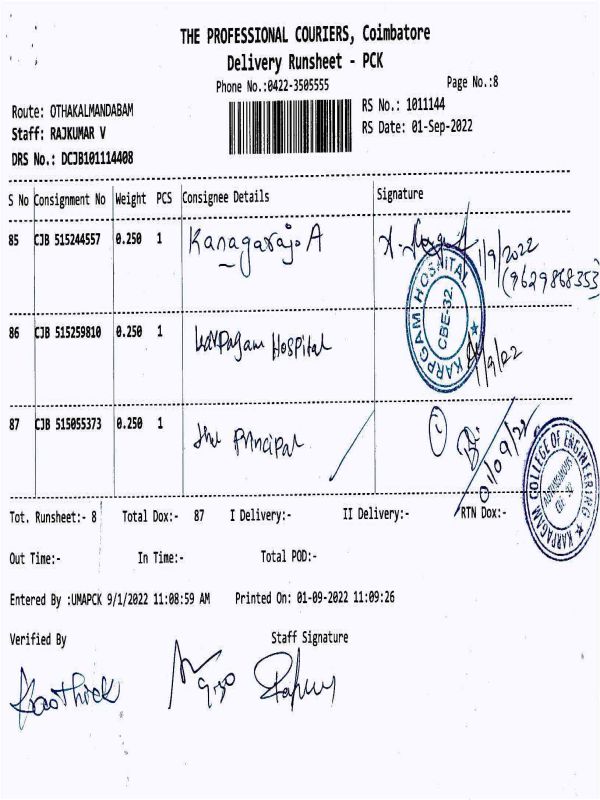 THE PROFESSIONAL COURIERS, Coimbatore
Delivery Runsheet - PCK
Phone No.:0422-3505555
Page No.:8
Route: OTHAKALMANDABAM
RS No.: 1011144
Staff: RAJKUMAR V
RS Date: 01-Sep-2022
DRS No.: DCJB101114408
S No Consignment No Weight PCS Consignee Details Signature
85 CJB 515244557 0.250 1 Kanagaraja A 1/9/2022
(9629868353)
KARPAGAM HOSPITAL
CBE-32.
86 CJB 515259810 0.250 1 Karpagam Hospital 1/9/22
87 CJB 515055373 0.250 1 The Principal 01/09/22
KARPAGAM COLLEGE OF ENGINEERING
CBE-32
Tot. Runsheet:- 8 Total Dox:- 87 I Delivery:- II Delivery:- RTN Dox:-
Out Time:- In Time:- Total POD:-
Entered By :UMAPCK 9/1/2022 11:08:59 AM Printed On: 01-09-2022 11:09:26
Verified By Staff Signature
Kaothick